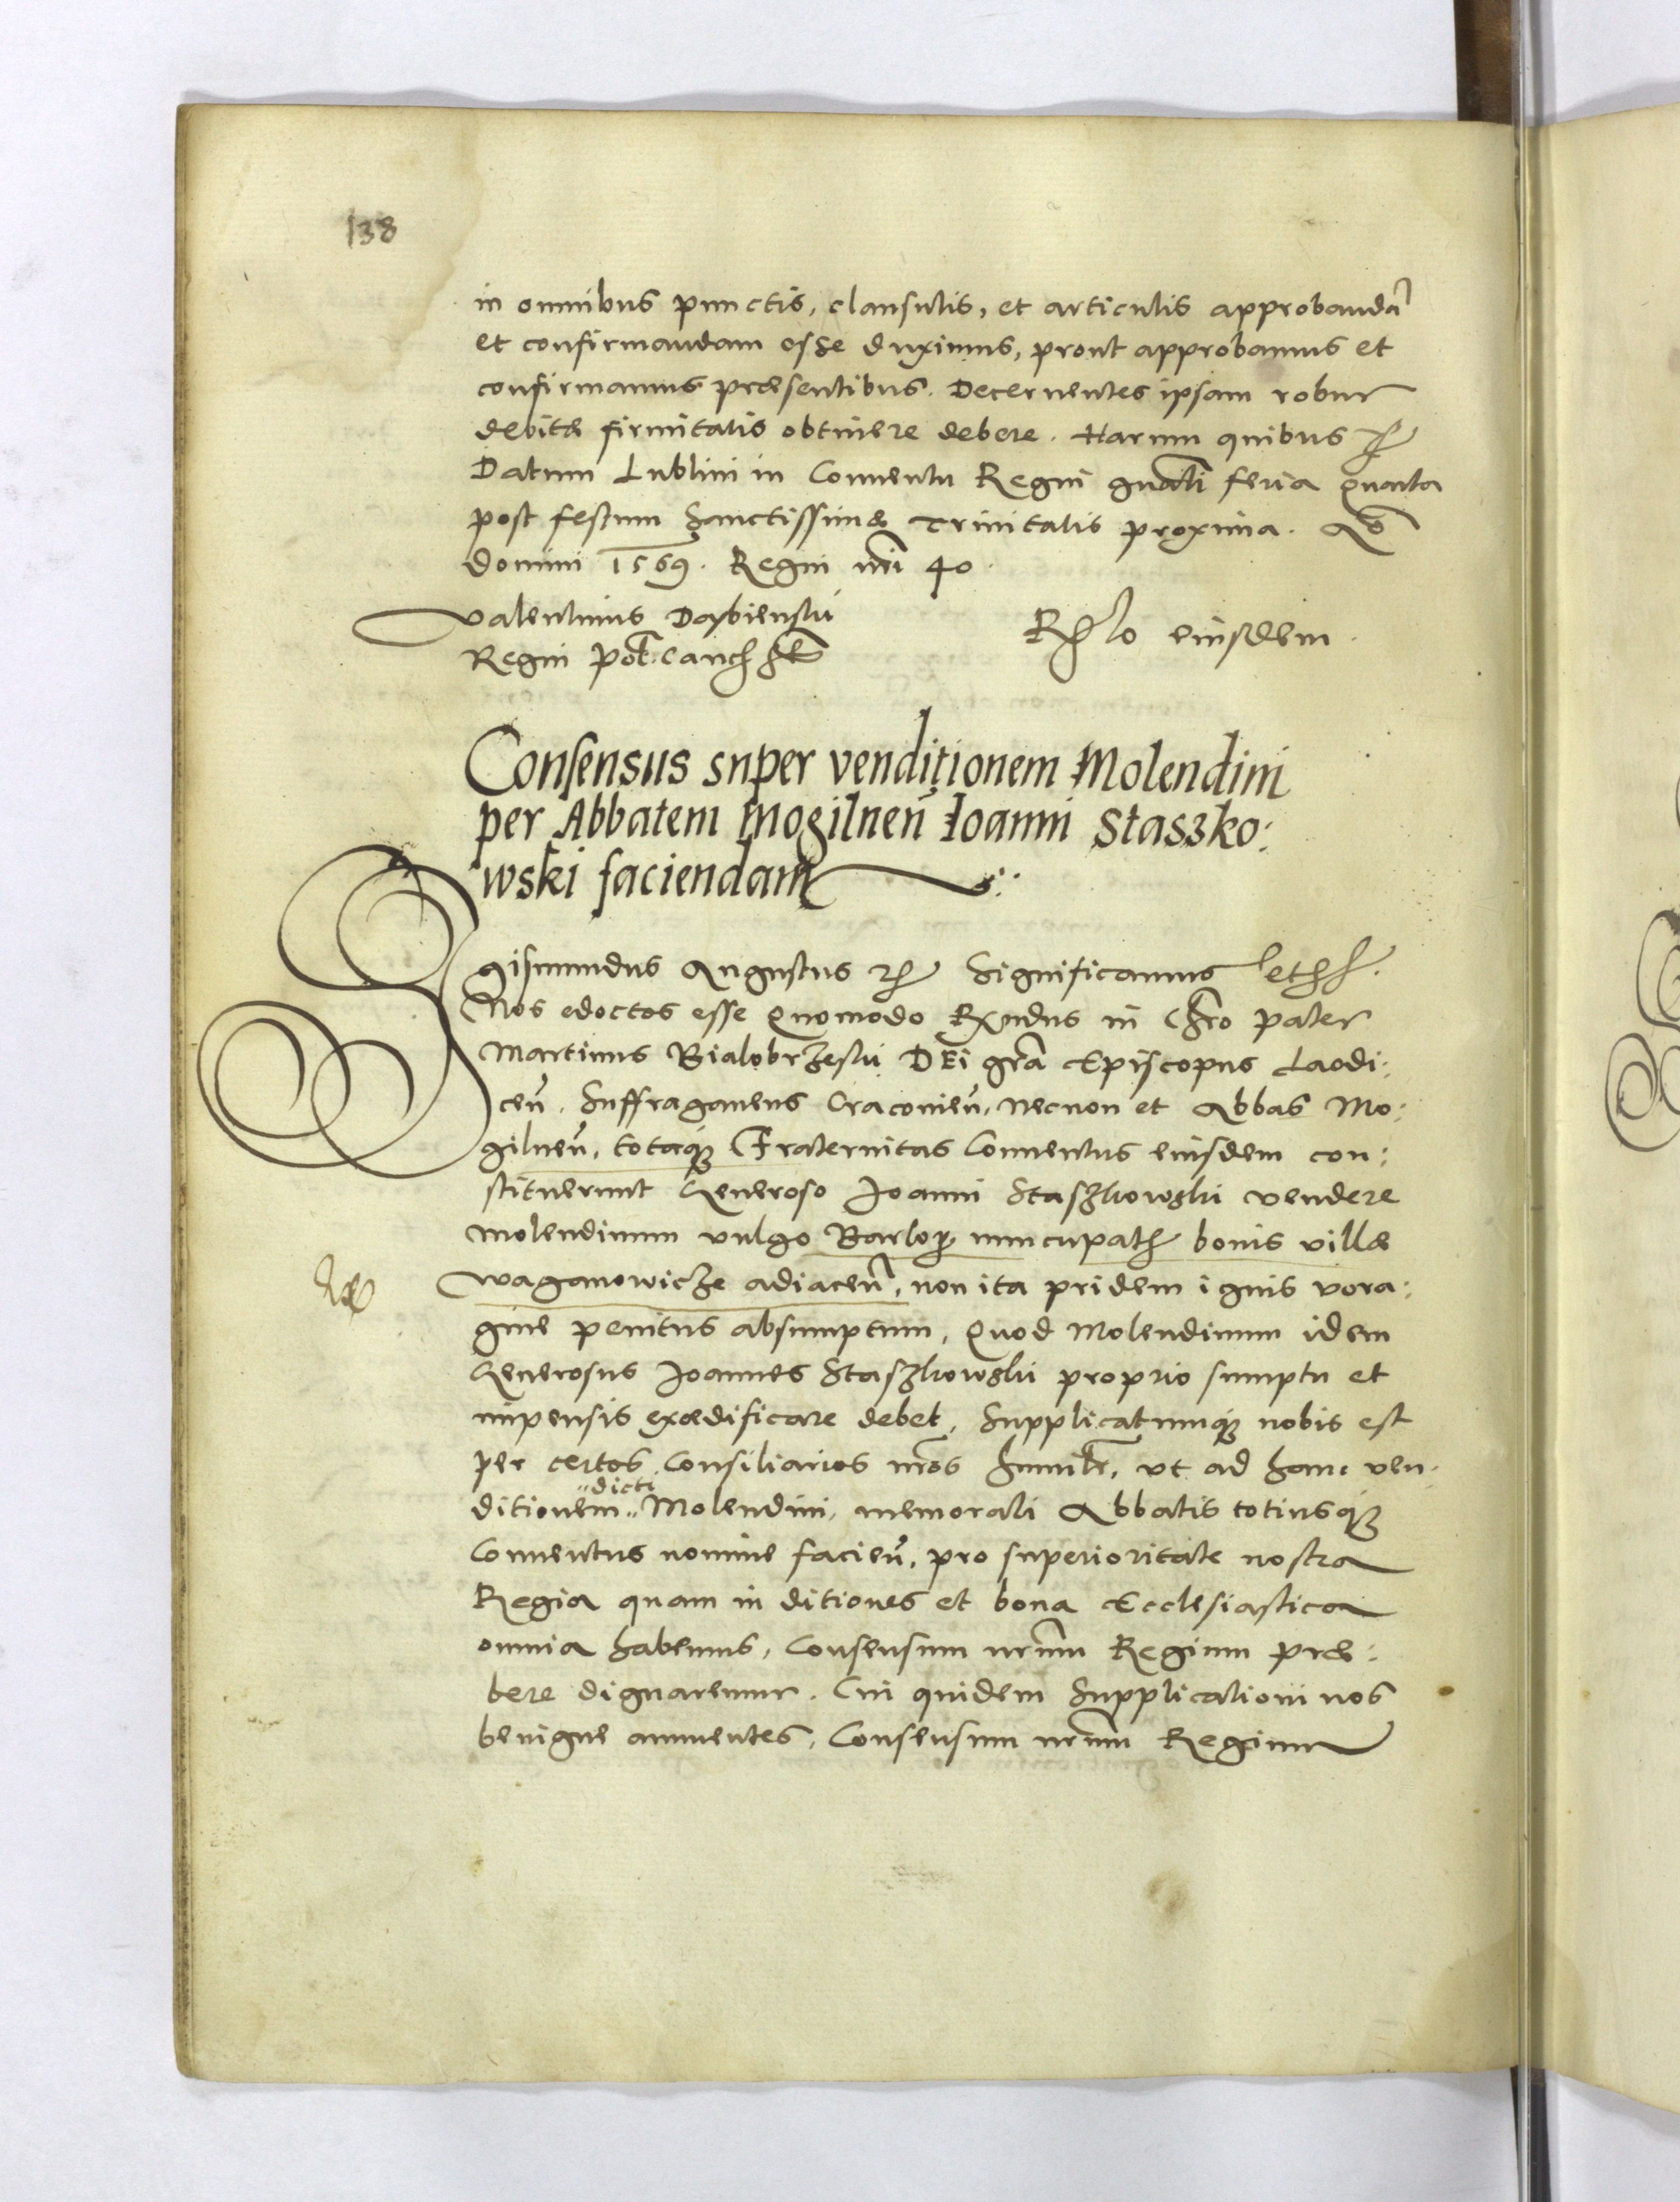 138
in omnibus punctis, clausulis, et articulis approbandā
et confirmandam esse duximus, prout approbamus et
confirmamus præsentibus. Decernentes ipsam robur
debitæ firmitatis obtinere debere. Harum quibus
Datum Lublini in Conventu Regni gnāli feria Quarta
post festum Sanctissimæ Trinitatis proxima. Aō
Domini 1569. Regni nrī 40.
Valentinus Dąbienski
Regni eiusdem.
Consensus super venditionem Molendini
per Abbatem Mogilneñ Ioanni Staszko:
wski faciendam
Sigismundus Augustus Significamus
Nos edoctos esse Quomodo Rxndus in Chrō pater
Martinus Bialobrzeski DEi grā Episcopus Laodi:
ceñ. Suffraganeus Cracovieñ, necnon et Abbas Mo:
gilneñ, totaq3 Fraternitas Conventus eiusdem con:
stituerunt Generoso Joanni Staszkowski vendere
molendinum vulgo nuncupat bonis villæ
Waganowicze adiaceñ, non ita pridem ignis vora:
gine penitus absumptum, Quod Molendinum idem
Generosus Joannes Staszkowski proprio sumptu et
impensis exædificare debet, Supplicatumq3 nobis est
per certos Consiliarios nrōs humilr̄, ut ad hanc ven:
ditionem dicti Molendini, memorati Abbatis totiusq3
Conventus nomine facieñ, pro superioritate nostra
Regia quam in ditiones et bona Ecclesiastica
omnia habemus, Consensum nrūm Regium præ:
bere dignaremur. Cui quidem Supplicationi nos
benigne annuentes, Consensum nrūm Regium